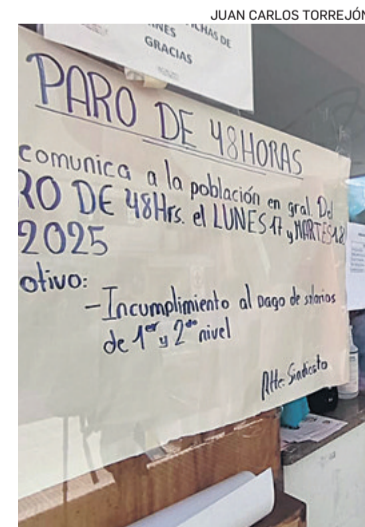 JUAN CARLOS TORREJÓN
NES
CHAS DE
GRACIAS
PARO DE 48HORAS
comunica a la población en gral. Del
RO DE 48Hrs. el LUNES 17 y MARTES 18
2025
otivo:
-Incumplimiento al pago de salarios
de 1er y 2do nivel
Atte: Sindicato